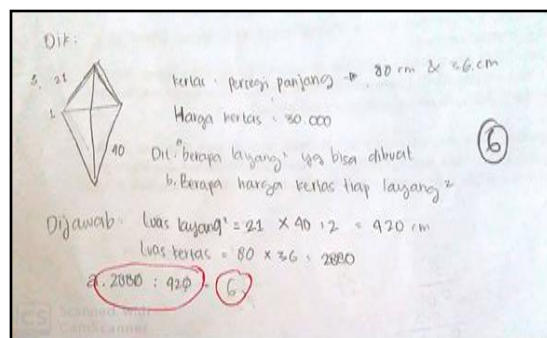 Dik:
3. 21
kertas : persegi panjang → 80 cm & 36 cm
1
Harga kertas : 30.000
40
Dit: a. berapa layang² yg bisa dibuat
6
b. Berapa harga kertas tiap layang²
Dijawab: Luas layang² = 21 × 40 : 2 = 420 cm
Luas kertas = 80 × 36 = 2880
a. 2880 : 420 = 6
CS Scanned with
CamScanner